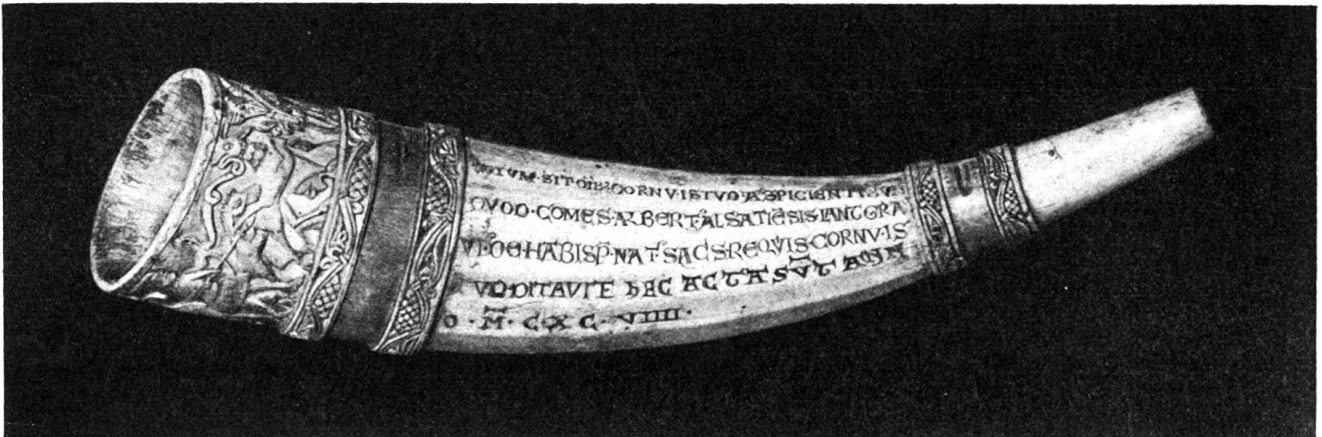 SIT OIB; CORNV ISTVD ASPICIENTIB;
QVOD · COMES · ALBERT ALSATIESIS LANTGRA
DE HABISP · NAT · SACS REQVIIS · CORNV · IS
DITAVIT E hEC ACTA SVT ANN
O · M · C · XC · VIIII ·